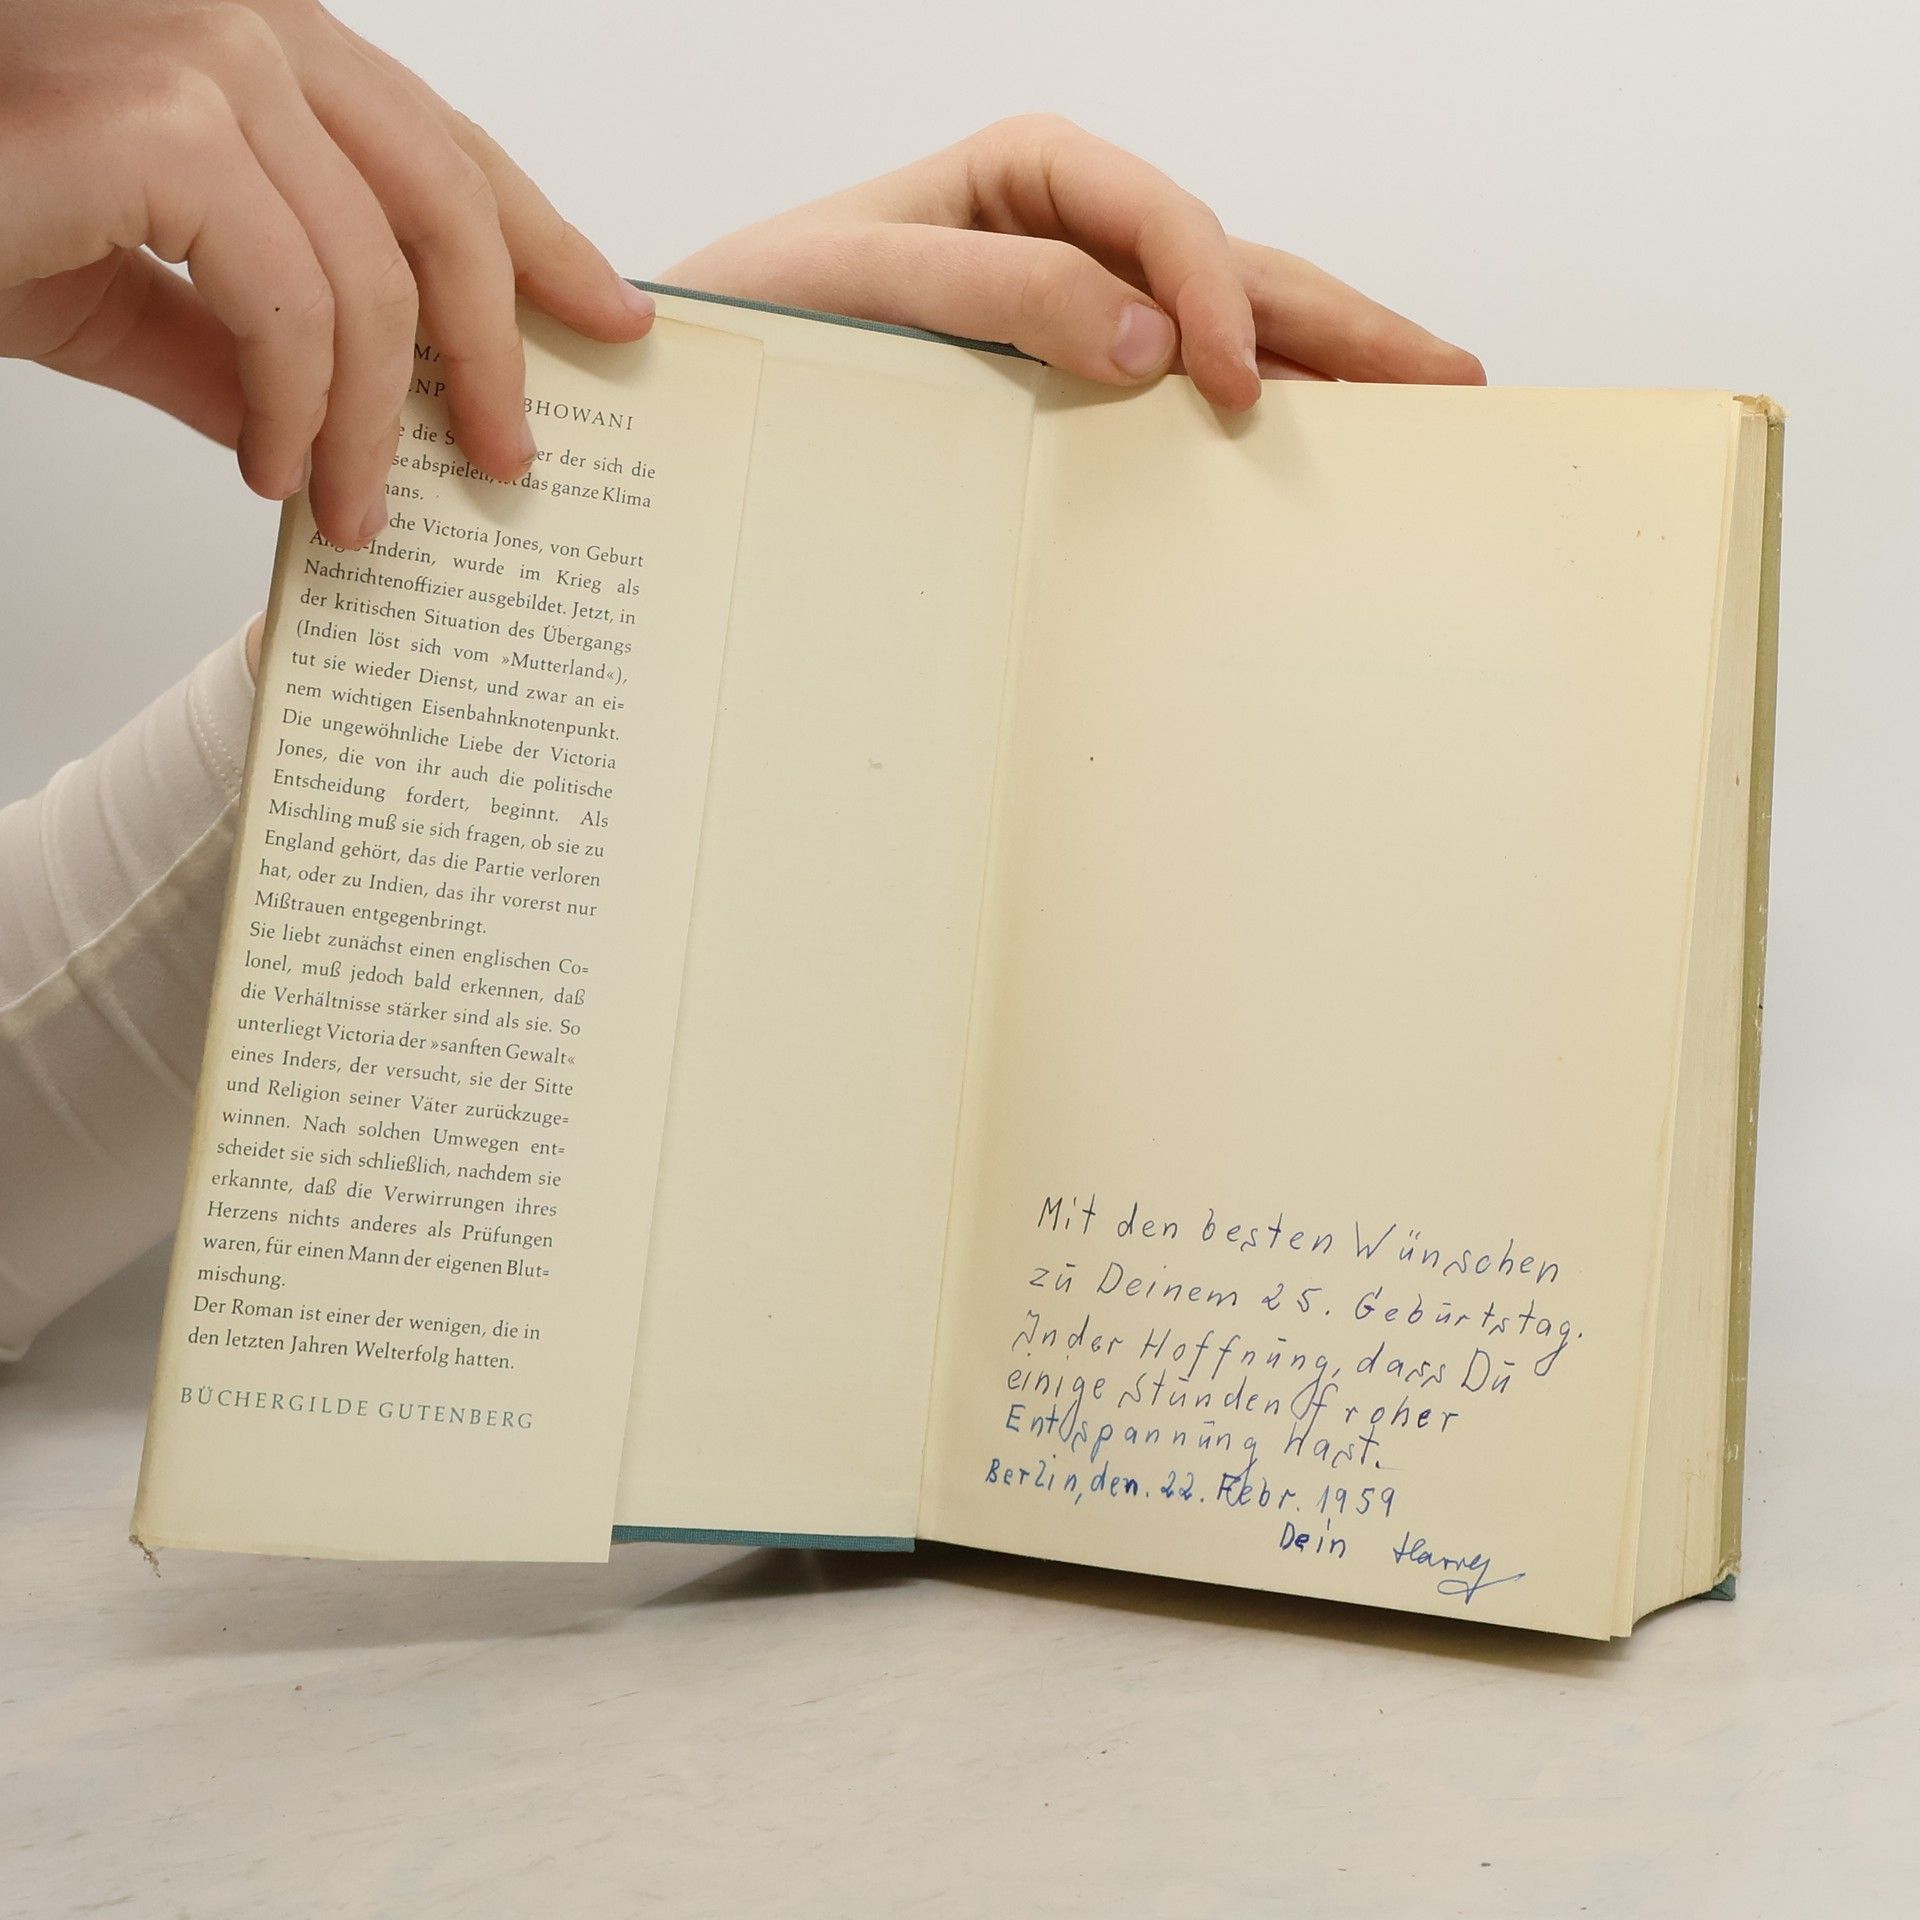 BHOWANI
die
er der sich die
abspielen, das ganze Klima
Victoria Jones, von Geburt
Anglo-Inderin, wurde im Krieg als
Nachrichtenoffizier ausgebildet. Jetzt, in
der kritischen Situation des Übergangs
(Indien löst sich vom »Mutterland«),
tut sie wieder Dienst, und zwar an ei=
nem wichtigen Eisenbahnknotenpunkt.
Die ungewöhnliche Liebe der Victoria
Jones, die von ihr auch die politische
Entscheidung fordert, beginnt. Als
Mischling muß sie sich fragen, ob sie zu
England gehört, das die Partie verloren
hat, oder zu Indien, das ihr vorerst nur
Mißtrauen entgegenbringt.
Sie liebt zunächst einen englischen Co=
lonel, muß jedoch bald erkennen, daß
die Verhältnisse stärker sind als sie. So
unterliegt Victoria der »sanften Gewalt«
eines Inders, der versucht, sie der Sitte
und Religion seiner Väter zurückzuge=
winnen. Nach solchen Umwegen ent=
scheidet sie sich schließlich, nachdem sie
erkannte, daß die Verwirrungen ihres
Herzens nichts anderes als Prüfungen
waren, für einen Mann der eigenen Blut=
mischung.
Der Roman ist einer der wenigen, die in
den letzten Jahren Welterfolg hatten.
BÜCHERGILDE GUTENBERG
Mit den besten Wünschen
zu Deinem 25. Geburtstag.
In der Hoffnung, dass Du
einige Stunden froher
Entspannung hast.
Berlin, den. 22. Febr. 1959
Dein Harry